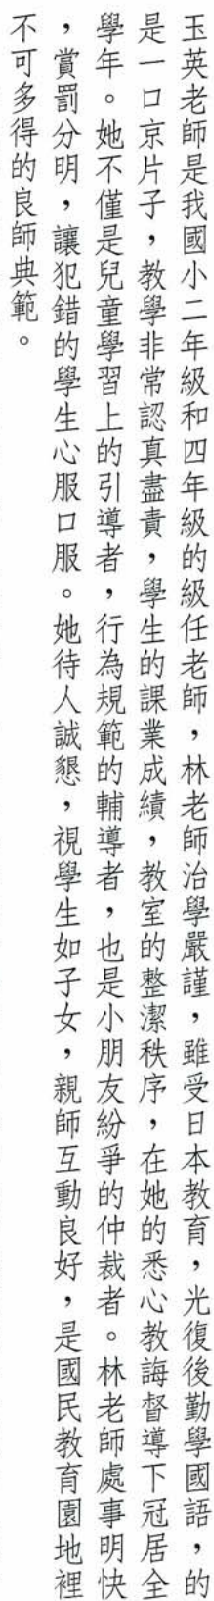 玉英老師是我國小二年級和四年級的級任老師，林老師治學嚴謹，雖受日本教育，光復後勤學國語，的
是一口京片子，教學非常認真盡責，學生的課業成績，教室的整潔秩序，在她的悉心教誨督導下冠居全
學年。她不僅是兒童學習上的引導者，行為規範的輔導者，也是小朋友紛爭的仲裁者。林老師處事明快
，賞罰分明，讓犯錯的學生心服口服。她待人誠懇，視學生如子女，親師互動良好，是國民教育園地裡
不可多得的良師典範。